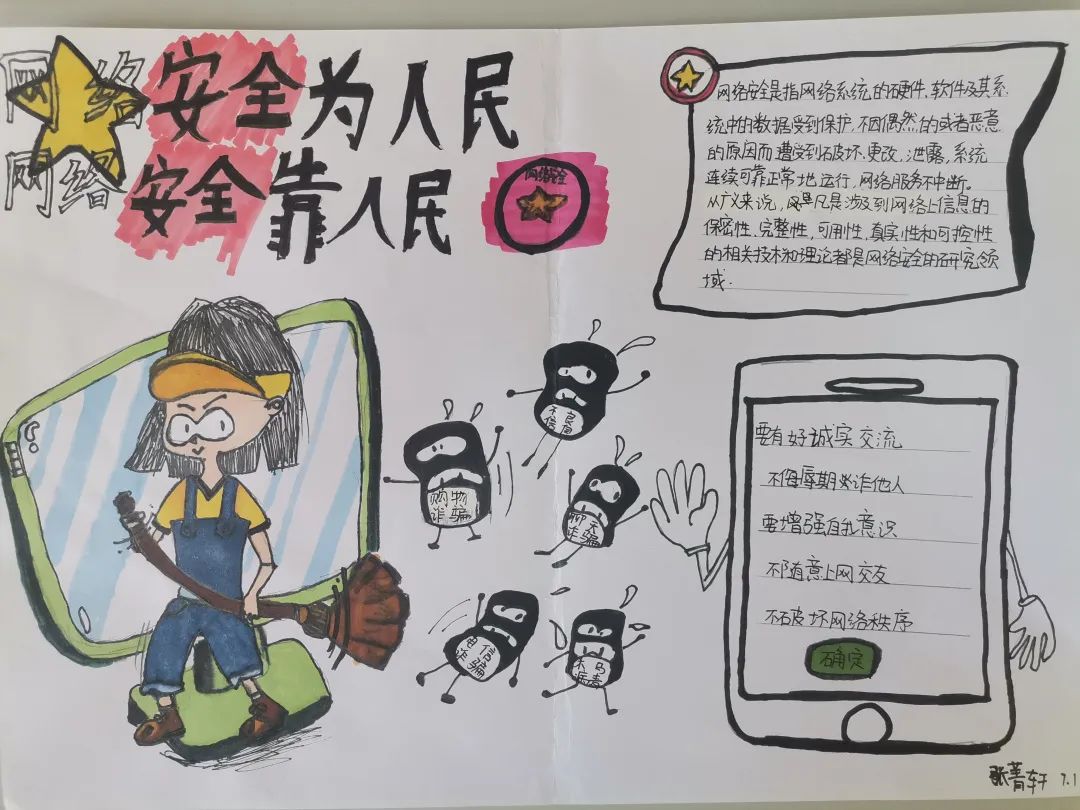 网络安全为人民
网络安全靠人民
网络安全
网络安全是指网络系统的硬件、软件及其系
统中的数据受到保护,不因偶然的或者恶意
的原因而遭受到破坏、更改、泄露,系统
连续可靠正常地运行,网络服务不中断。
从广义来说,凡是涉及到网络上信息的
保密性、完整性,可用性,真实性和可控性
的相关技术和理论都是网络安全的研究领
域.
不良
信息
购物
诈骗
聊天
诈骗
电信
诈骗
木马
病毒
要有好诚实交流
不侮辱期欺诈他人
要增强自我意识
不随意上网交友
不破坏网络秩序
确定
张菁轩 7.1